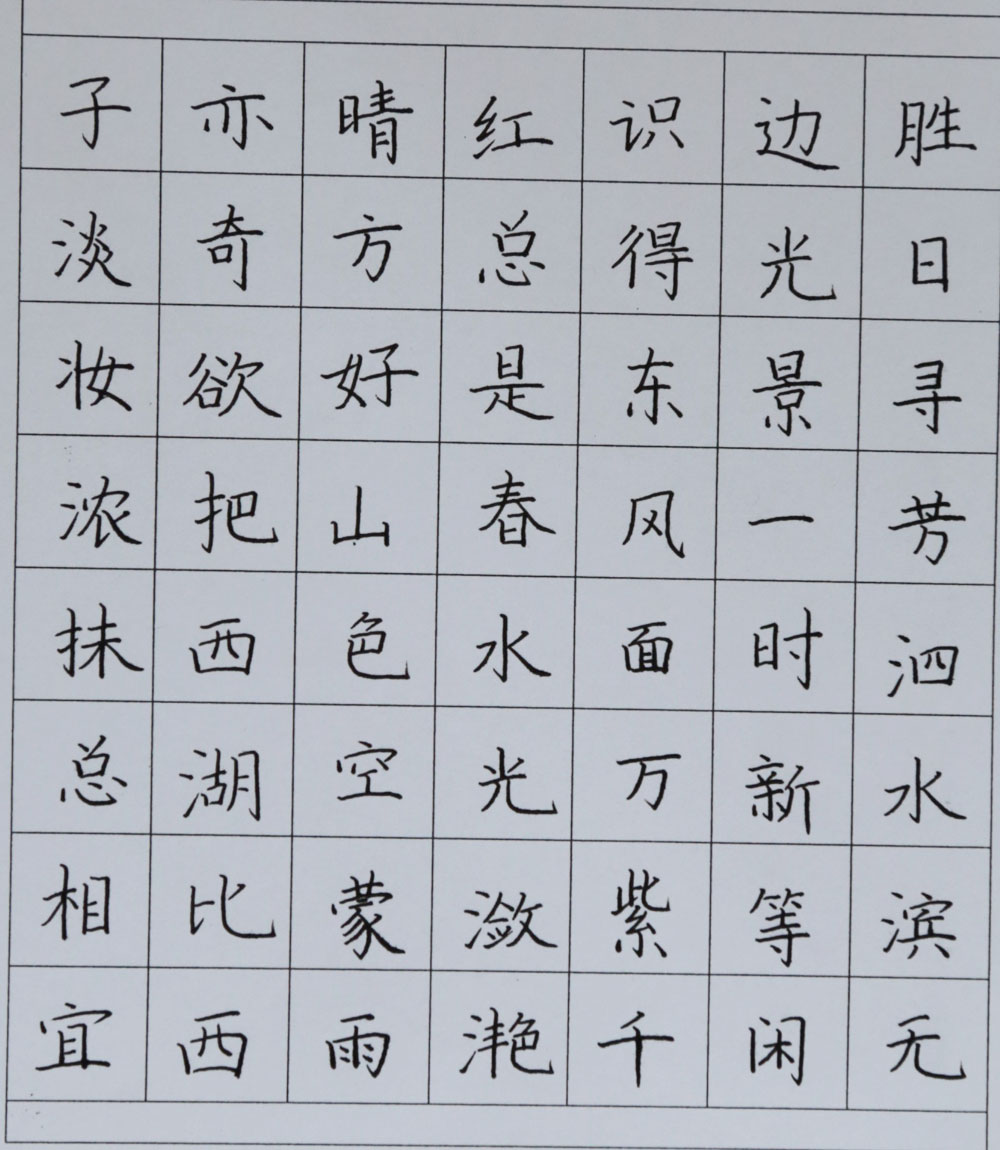 胜日寻芳泗水滨无
边光景一时新等闲
识得东风面万紫千
红总是春水光潋滟
晴方好山色空蒙雨
亦奇欲把西湖比西
子淡妆浓抹总相宜